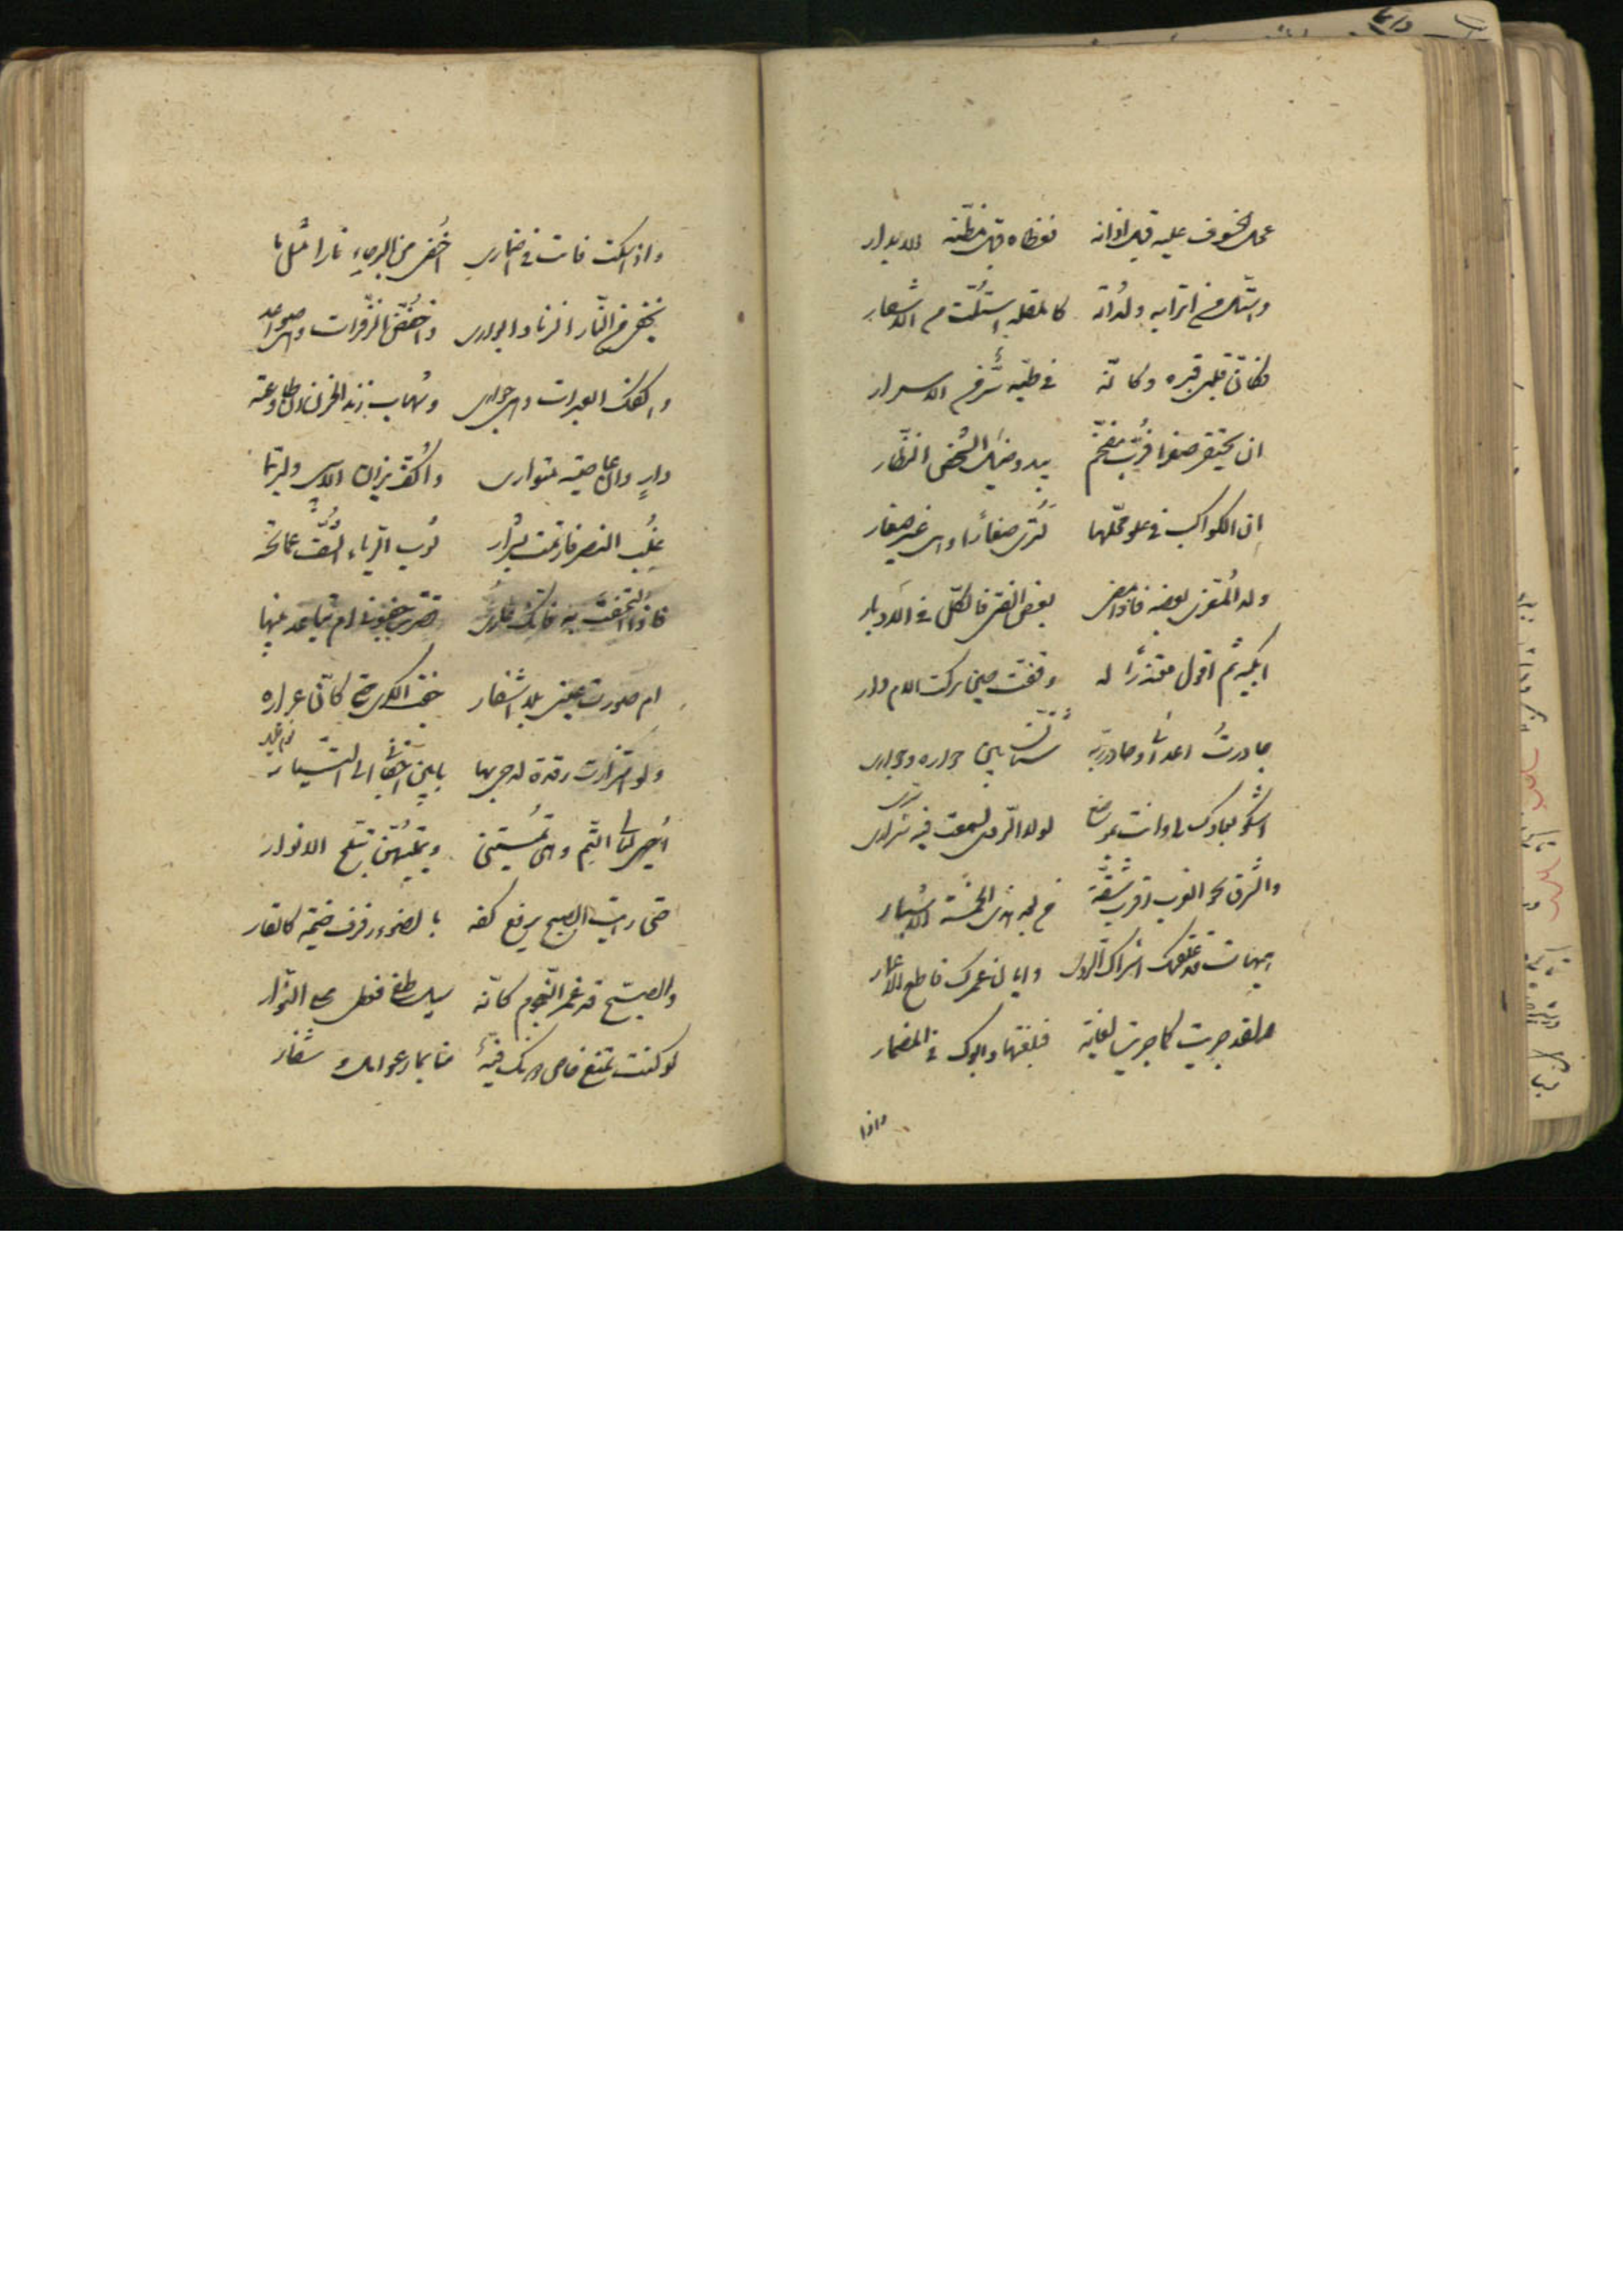 عجل الخسوف عليه قبل اوانه فغطاه قبل مظنّة الابدار
واستلّ من اترابه ولداته كالمقلة استلّت من الاشفار
فكانّ قلبى قبره وكانّه فى طيّه سرّ من الاسرار
ان يحتقر صغرا فربّ مفخّم يبدو ضئيل الشخص للنظّار
ان الكواكب فى علو محلّها لترى صغارًا وهى غير صغار
ولد المعزى بعضه فاذا مضى بعض الفتى فالكلّ فى الادبار
ابكيه ثم اقول معتذرًا له وفقت حين تركت الام دار
جاورتُ اعدائى وجاور ربّه شتّان بين جواره وجوارى
اشكو بعادك لى وانت بموضع لولا الرّدى لسمعت فيه سرارى
والشرق نحو الغرب اقرب شقّة من بعد تلك الخمسة الاشبار
هيهات قد علقتك اشراك الردى واباد عمرك قاطع الاعمار
ولقد جريت كما جريت لغاية فبلغتها وابوك فى المضمار
واذا
واذا سكت فانت فى اضمارى اخفى من البرحاء نارا مثل ما
يخفى من النّار الزناد الوارى واخفّض الزّفرات وهى صواعد
واكفكف العبرات وهى جوارى وشهاب زند الحزن ان طاوعته
وارٍ وان عاصيته متوارى واكفّ نيران الاسى ولربّما
غلب التصبر فارتمت بشرار ثوب الرياء يشفّ عما تحته
فاذا التحفت به فانّك عار قصرت جفونى ام تباعد بينها
ام صورت عينى بلا اشفار جفت الكرى حتى كانّ غراره
ولو استزارت رقدة لدجى بها ما بين اجفانى الى التّيار
احيى ليالى التمّ وهى تميتنى ويميتهنّ تبلّج الانوار
حتى رايت الصبح يرفع كفه بالضوء رفرف خيمة كالقار
والصبح قد غمر النّجوم كانّه سيل طغى فطمى على النّوّار
لو كنت تمنع خاض دونك فتية منا بحار عوامل وشفار